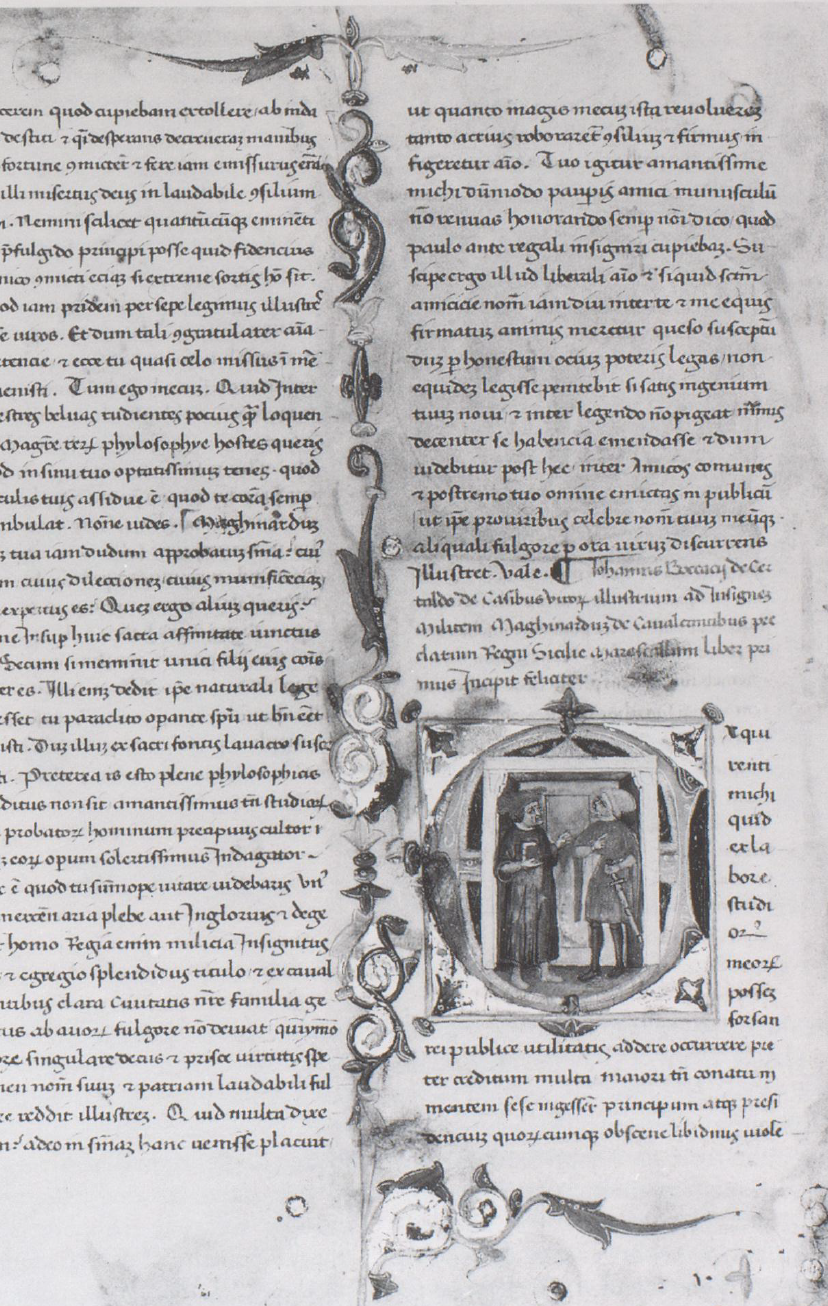 quod cupiebam extollere ab inda
destiti ⁊ desperans decreveraz manibus
fortune ꝯmicter ⁊ fere iam
illi misertus deus in laudabile ꝯsilium
Nemini scilicet eminēti
p̄fulgido principi posse quid fidencius
eciaʒ si extreme sortis hō sit.
iam pridem per sepe legimus illustrē
viros. Et dum tali ꝯgratularer
⁊ ecce tu quasi celo missus ī mē
Tum ego mecuʒ. Quid Inter
beluas rudientes pocius loquen
phylosophye hostes queris
in sinu tuo optatissimuʒ tenes. quod
tuis assidue ē quod te semp
Nōne vides. Maghinarduʒ
tua iam dudum approbatuʒ
cuius dilectioneʒ cuius
es? Queʒ ergo alium queris?
Insup huic sacra affinitate vinctus
Secum si meminit unici filij eius
es. Illi eniʒ dedit ip̄e naturali lege
tu paraclito opante spū ut
illuʒ ex sacri fontis lavacro
Preterea is esto plene phylosophicis
non sit amantissimus tn̄ studioꝝ
probatoꝝ hominum precipuus cultor
opum solertissimus Indagator
ē quod tu sūmope vitare videbaris
plebe aut Inglorius ⁊ dege
homo Regia enim milicia Insignitus
⁊ egregio splendidus titulo ⁊ ex caval
clara Civitatis nr̄e familia ge
ab avoꝝ fulgore nō deviat quiymo
singulare decus ⁊ prisce virtutis spe
nom̄ suuʒ ⁊ patriam laudabili ful
reddit illustreʒ. Quid multa dixe
adeo in hanc venisse placuit
ut quanto magis mecuʒ ista
tanto acrius roboraret ꝯsiliuʒ ⁊ firmius in
figeretur aīo. Tuo igitur amantissime
michi dūmodo paupis amici munusculū
nō renuas honorando semp nōi dico quod
paulo ante regali insigniri cupiebaʒ. Su
scipe ergo illud liberali aīo ⁊ siquid
amicicie nom̄ iam diu inter te ⁊ me equis
firmatuʒ animis meretur queso susceptū
duʒ p honestum ocius poteris legas non
equideʒ legisse penitebit si satis ingenium
tuuʒ novi ⁊ inter legendo nō pigeat
decenter se habencia emendasse ⁊ dum
videbitur post hec inter Amicos comunes
⁊ postremo tuo omine emictas in publicū
ut ip̄e pro viribus celebre nom̄ tuuʒ meūqʒ
aliquali fulgore p ora viruʒ discurrens
Illustret. Vale. ¶ Iohannis Boccacij de Cer
taldo de Casibus viroꝝ illustrium ad Insigneʒ
Militem Maghinarduʒ de Cavalcantibus pre
clarum Regni Sicilie Marescallum liber pri
mus Incipit feliciter
Exqui
renti
michi
quid
ex la
bore
studi
oꝝ
meoꝝ
posseʒ
forsan
rei publice utilitatis addere occurrere pre
ter creditum multa maiori tn̄ conatu in
mentem sese ingesser̄ principum atqʒ presi
denciuʒ quoꝝcumqʒ obscene libidines viole